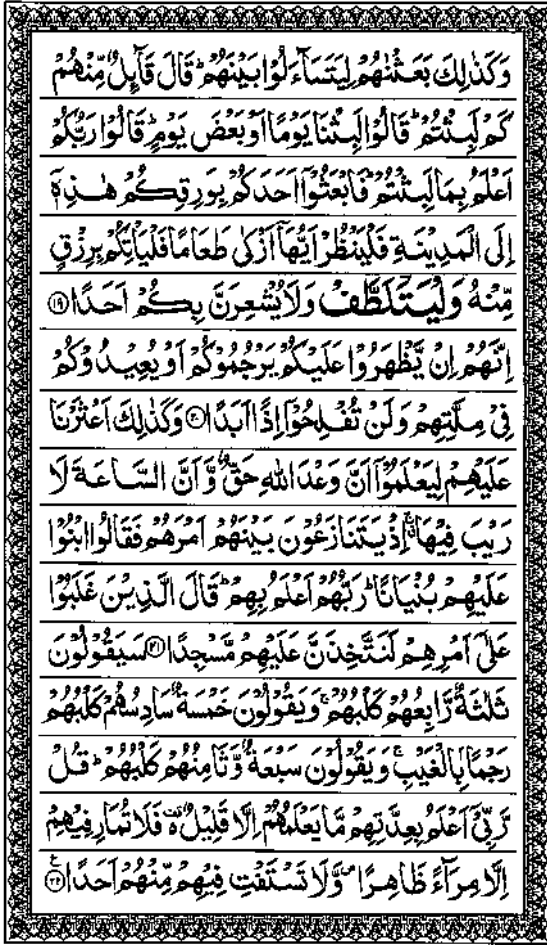 وَكَذٰلِكَ بَعَثْنٰهُمْ لِيَتَسَآءَلُوْا بَيْنَهُمْ ؕ قَالَ قَآئِلٌ مِّنْهُمْ
كَمْ لَبِثْتُمْ ؕ قَالُوْا لَبِثْنَا يَوْمًا اَوْ بَعْضَ يَوْمٍ ؕ قَالُوْا رَبُّكُمْ
اَعْلَمُ بِمَا لَبِثْتُمْ ؕ فَابْعَثُوْۤا اَحَدَكُمْ بِوَرِقِكُمْ هٰذِهٖۤ
اِلَى الْمَدِيْنَةِ فَلْيَنْظُرْ اَيُّهَاۤ اَزْكٰى طَعَامًا فَلْيَاْتِكُمْ بِرِزْقٍ
مِّنْهُ وَلْيَتَلَطَّفْ وَلَا يُشْعِرَنَّ بِكُمْ اَحَدًا ۝۱۹
اِنَّهُمْ اِنْ يَّظْهَرُوْا عَلَيْكُمْ يَرْجُمُوْكُمْ اَوْ يُعِيْدُوْكُمْ
فِيْ مِلَّتِهِمْ وَلَنْ تُفْلِحُوْۤا اِذًا اَبَدًا ۝۲۰ وَكَذٰلِكَ اَعْثَرْنَا
عَلَيْهِمْ لِيَعْلَمُوْۤا اَنَّ وَعْدَ اللّٰهِ حَقٌّ وَّاَنَّ السَّاعَةَ لَا
رَيْبَ فِيْهَا ۚ اِذْ يَتَنَازَعُوْنَ بَيْنَهُمْ اَمْرَهُمْ فَقَالُوا ابْنُوْا
عَلَيْهِمْ بُنْيَانًا ؕ رَبُّهُمْ اَعْلَمُ بِهِمْ ؕ قَالَ الَّذِيْنَ غَلَبُوْا
عَلٰۤى اَمْرِهِمْ لَنَتَّخِذَنَّ عَلَيْهِمْ مَّسْجِدًا ۝۲۱ سَيَقُوْلُوْنَ
ثَلٰثَةٌ رَّابِعُهُمْ كَلْبُهُمْ ۚ وَيَقُوْلُوْنَ خَمْسَةٌ سَادِسُهُمْ كَلْبُهُمْ
رَجْمًا بِالْغَيْبِ ۚ وَيَقُوْلُوْنَ سَبْعَةٌ وَّثَامِنُهُمْ كَلْبُهُمْ ؕ قُلْ
رَّبِّيْۤ اَعْلَمُ بِعِدَّتِهِمْ مَّا يَعْلَمُهُمْ اِلَّا قَلِيْلٌ ۫ فَلَا تُمَارِ فِيْهِمْ
اِلَّا مِرَآءً ظَاهِرًا ۪ وَّلَا تَسْتَفْتِ فِيْهِمْ مِّنْهُمْ اَحَدًا ۝۲۲